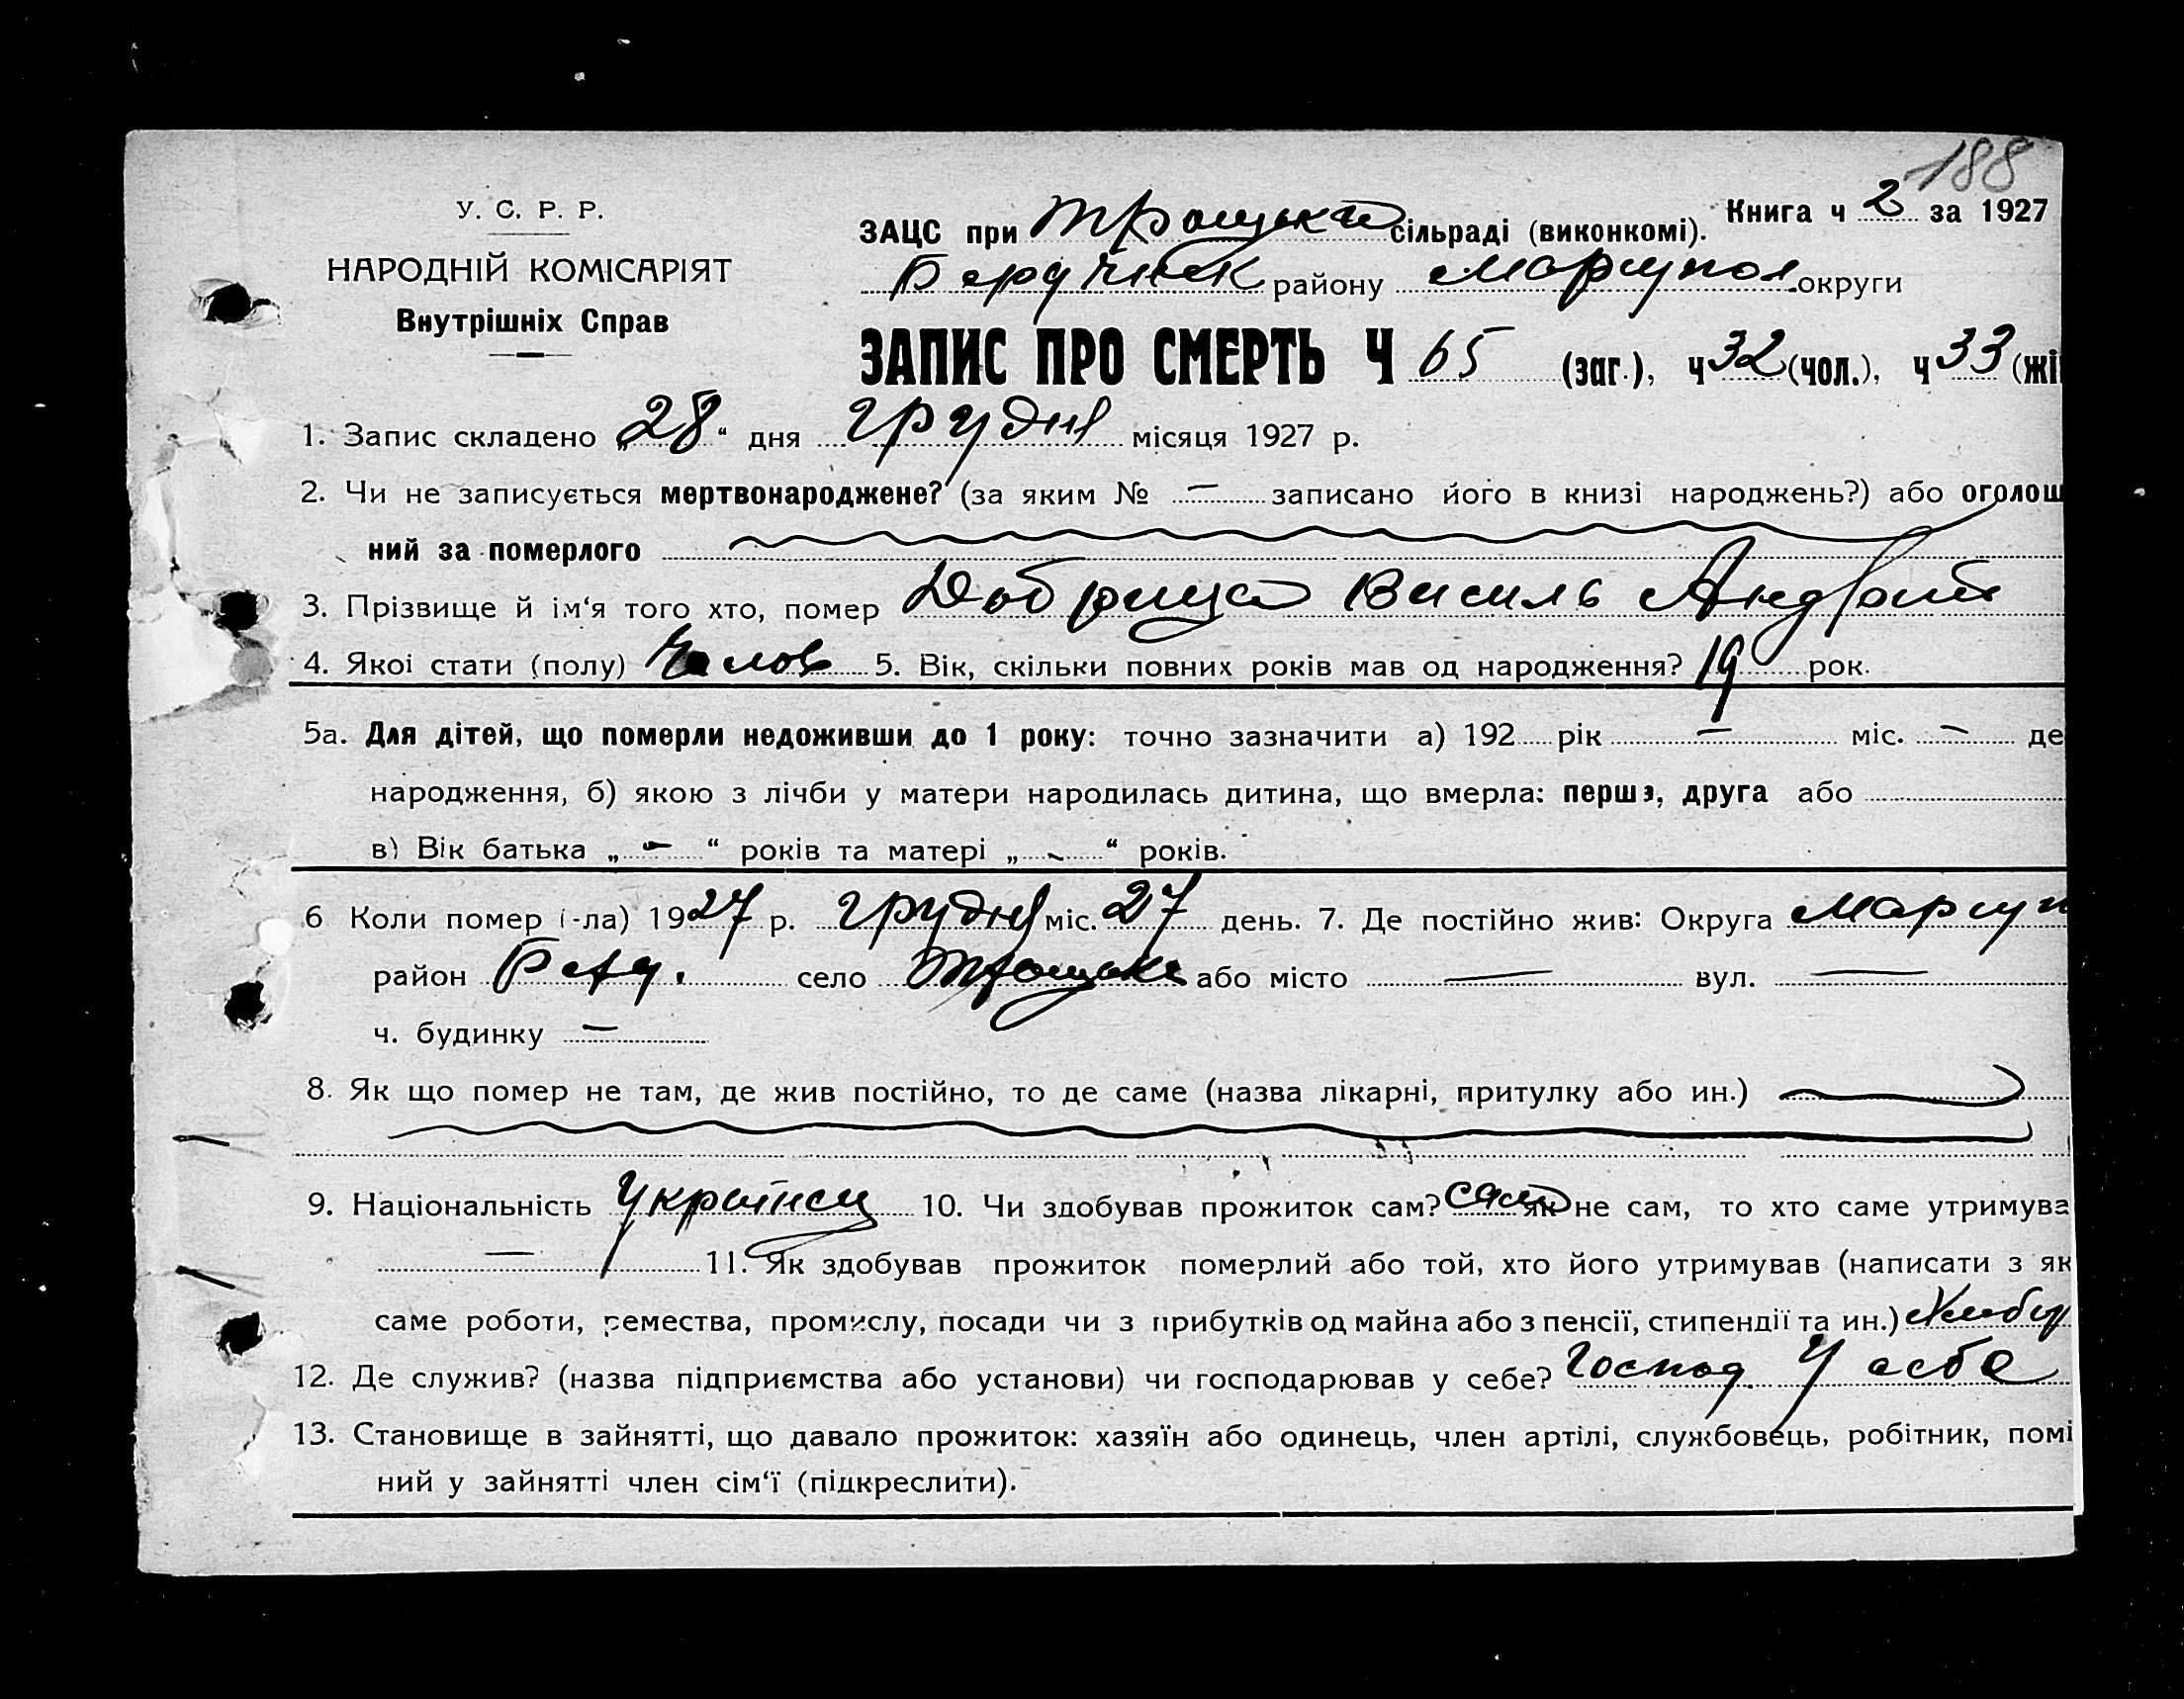 188
У. С. Р. Р.
НАРОДНІЙ КОМІСАРІЯТ
Внутрішніх Справ
Книга ч 2 за 1927
ЗАЦС при Троицькій сільраді (виконкомі).
району Маріупол округи
ЗАПИС ПРО СМЕРТЬ Ч 65 (заг.), ч 32 (чол.), ч 33 (жі
1. Запис складено „28“ дня грудня місяця 1927 р.
2. Чи не записується мертвонароджене? (за яким № — записано його в книзі народжень?) або оголош
ний за померлого
3. Прізвище й ім‘я того хто, помер Добриця Василь Андрой
4. Якої стати (полу) Чалов 5. Вік, скільки повних років мав од народження? 19 рок.
5а. Для дітей, що померли недоживши до 1 року: точно зазначити а) 192 рік — міс. — де
народження, б) якою з лічби у матери народилась дитина, що вмерла: перша, друга або
в) Вік батька „ — “ років та матері „ - “ років.
6 Коли помер (-ла) 1927 р. грудня міс. 27 день. 7. Де постійно жив: Округа Мариуп
район Берд. село Троицьке або місто — вул. —
ч. будинку —
8. Як що помер не там, де жив постійно, то де саме (назва лікарні, притулку або ин.)
9. Національність Українец 10. Чи здобував прожиток сам? сам як не сам, то хто саме утримува
— 11. Як здобував прожиток померлий або той, хто його утримував (написати з як
саме роботи, ремества, промислу, посади чи з прибутків од майна або з пенсії, стипендії та ин.)
12. Де служив? (назва підприємства або установи) чи господарював у себе? Господ. У себе
13. Становище в зайнятті, що давало прожиток: хазяїн або одинець, член артілі, службовець, робітник, помі
ний у зайнятті член сім‘ї (підкреслити).